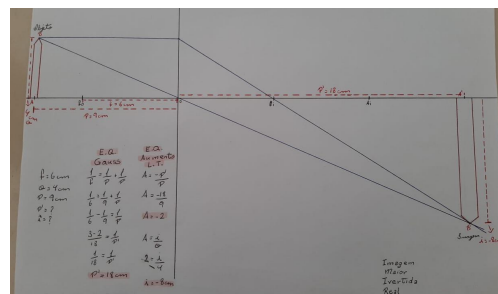 Objeto
f=6cm
P=9cm
P'=18cm
f=6cm
O=4cm
P=9cm
P'=?
i=?
E.Q
Gauss
1/f = 1/P + 1/P'
1/6 = 1/9 + 1/P'
1/6 - 1/9 = 1/P'
3-2/18 = 1/P'
1/18 = 1/P'
P'=18cm
E.Q
Aumento
L.T.
A = -P'/P
A = -18/9
A = -2
i=-8cm
i=-8cm
Imagem
Imagem
Maior
Invertida
Real